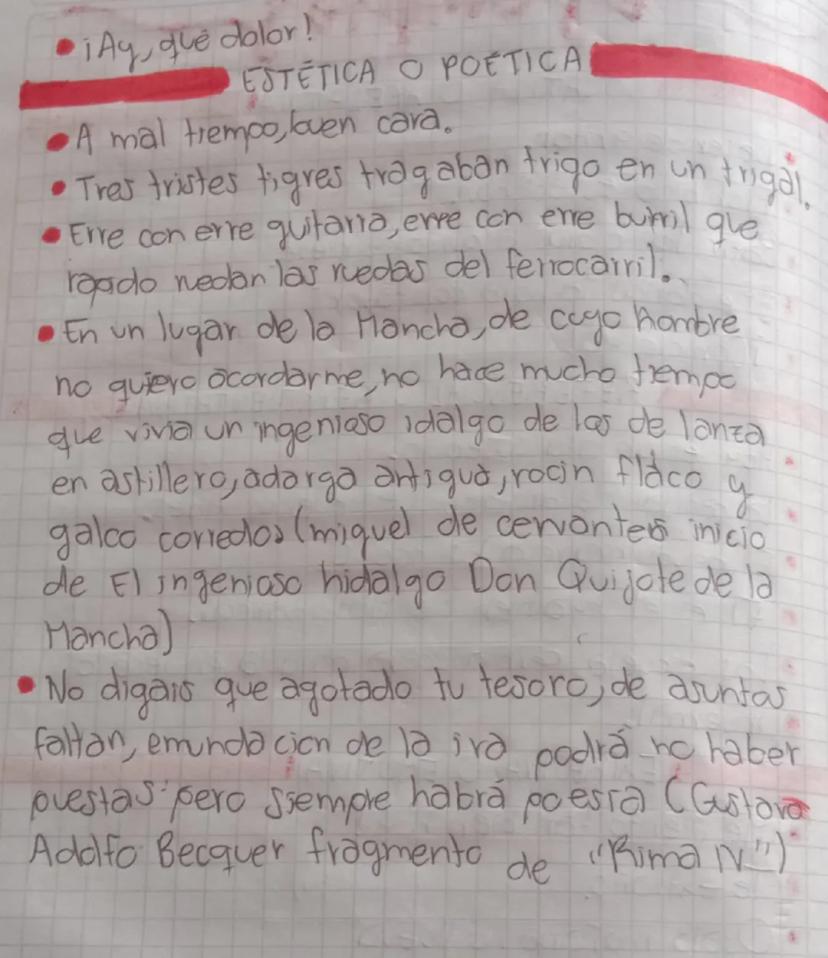 • ¡Ay, qué dolor!
ESTÉTICA O POÉTICA
• A mal tiempo, buen cara.
• Tres tristes tigres tragaban trigo en un trigal.
• Erre con erre guitarra, erre con erre burril que
ruedan las ruedas del ferrocarril.
• En un lugar de la Mancha, de cuyo hombre
no quiero acordarme, no hace mucho tiempo
que vivia un ingenioso idalgo de las de lanza
en astillero, adarga antigua, rocin flaco y
galco corredor (miguel de cervantes inicio
de El ingenioso hidalgo Don Quijote de la
Mancha)
• No digais que agotado tu tesoro, de asuntas
faltan, de la ira podrá no haber
puestas pero siempre habrá poesia (Gustavo
Adolfo Becquer fragmento de "Rima IV")